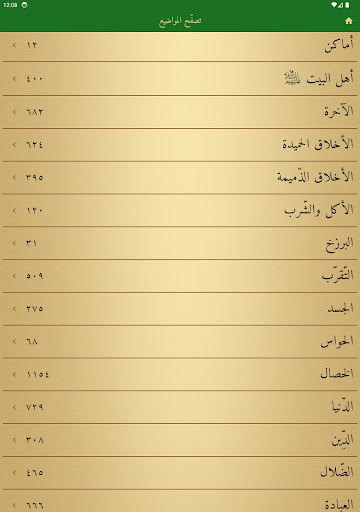 12:08
تصفّح المواضيع
أماكن ١٢
أهل البيت ﷺ ٤٠٠
الآخرة ٦٨٢
الأخلاق الحميدة ٦٢٤
الأخلاق الذّميمة ٣٩٥
الأكل والشّرب ١٢٠
البرزخ ٣١
التّقرّب ٥٠٩
الجسد ٢٧٥
الحواس ٦٨
الخصال ١١٥٤
الدّنيا ٧٢٩
الدِّين ٣٠٨
الضّلال ٤٦٥
العبادة ٦٦٦